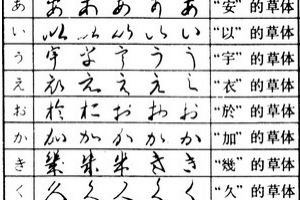 あ 安 あ あ あ あ “安”的草体
い 以 以 い い い “以”的草体
う 宇 宇 う う う “宇”的草体
え 衣 え え え え “衣”的草体
お 於 於 お お お “於”的草体
か 加 か か か か “加”的草体
き 幾 幾 き き き “幾”的草体
く 久 久 く く く “久”的草体